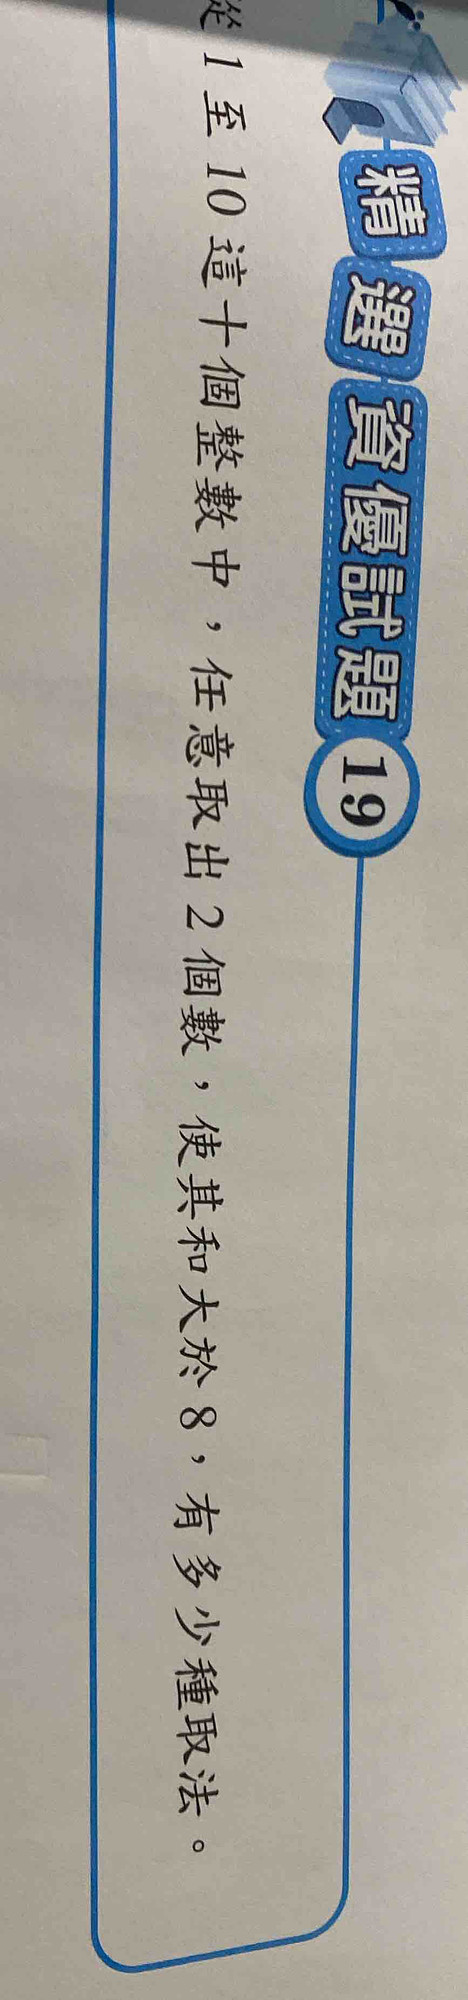 精選資優試題 19
從 1 至 10 這十個整數中，任意取出 2 個數，使其和大於 8，有多少種取法。